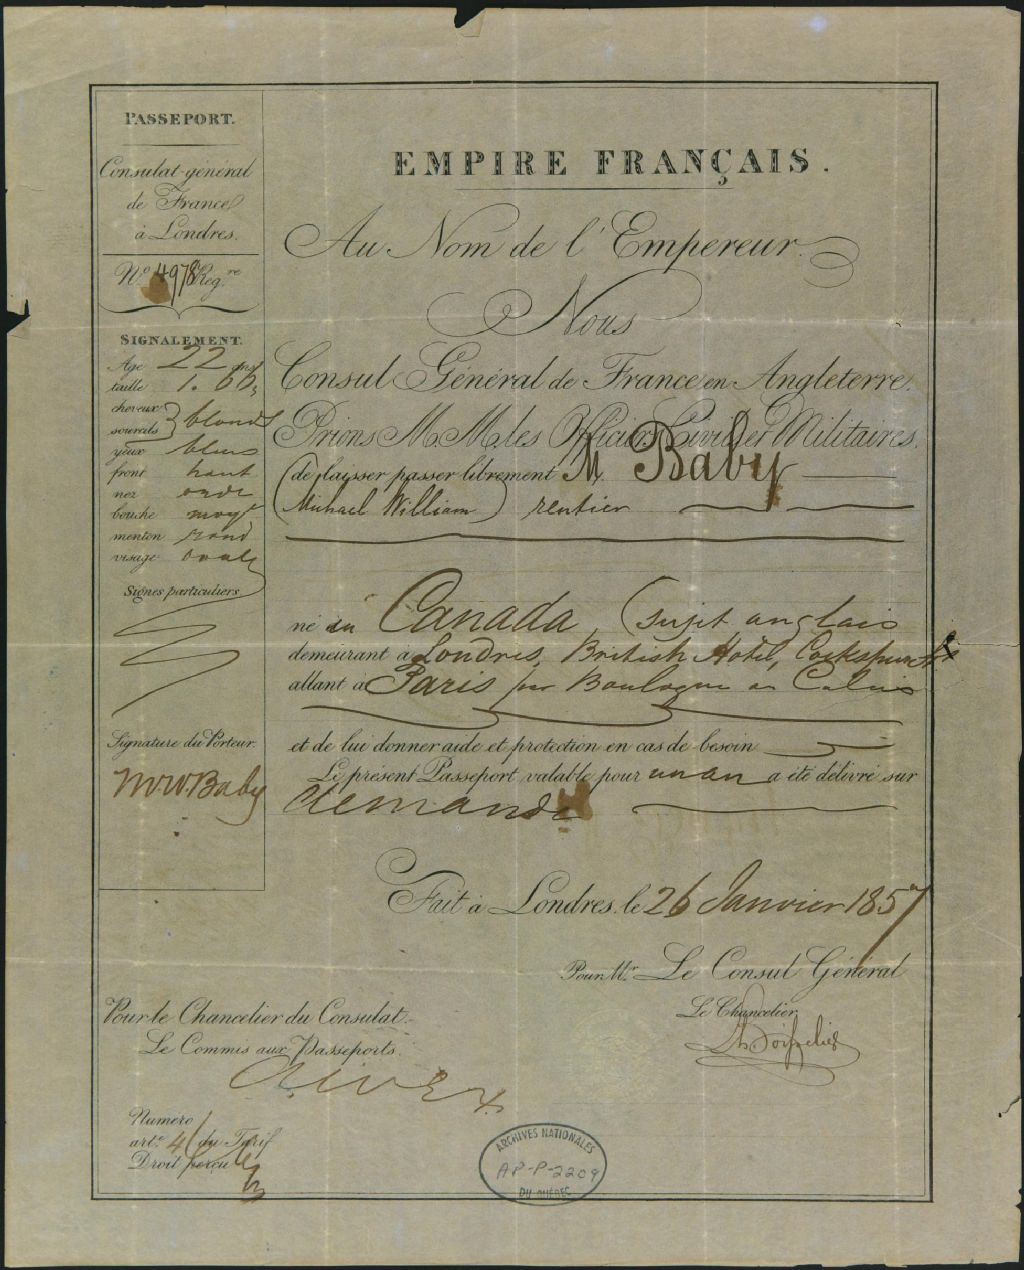 PASSEPORT.
Consulat-général
de France
à Londres.
No. 4978 Reg.re
SIGNALEMENT.
Age 22 ans
taille 1. 60
cheveux
sourcils } blonds
yeux bleus
front haut
nez
bouche moye
menton rond
visage ovale
Signes particuliers
Signature du Porteur.
M.W. Baby
EMPIRE FRANÇAIS.
Au Nom de l'Empereur.
Nous
Consul Général de France en Angleterre.
Prions M.M. les Officiers Civils et Militaires.
de laisser passer librement M. Baby
(Michael William) rentier
né en Canada (sujet anglais
demeurant à Londres, British Hotel, Cockspur St
allant à Paris par Boulogne ou Calais
et de lui donner aide et protection en cas de besoin
Le présent Passeport, valable pour un an a été délivré sur
demande
Fait à Londres, le 26 Janvier 1857
Pour Mr. Le Consul Général
Le Chancelier,
Pour le Chancelier du Consulat.
Le Commis aux Passeports.
Numéro
artc. 41 du Tarif
Droit perçu
ARCHIVES NATIONALES
AP-P-2209
DU QUÉBEC